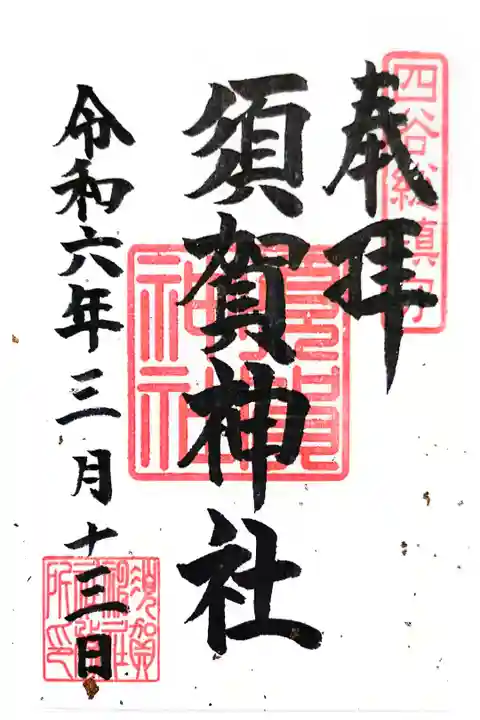 四谷総鎮守
奉拝
須賀神社
須賀神社
令和六年三月十三日
須賀神社社務所印